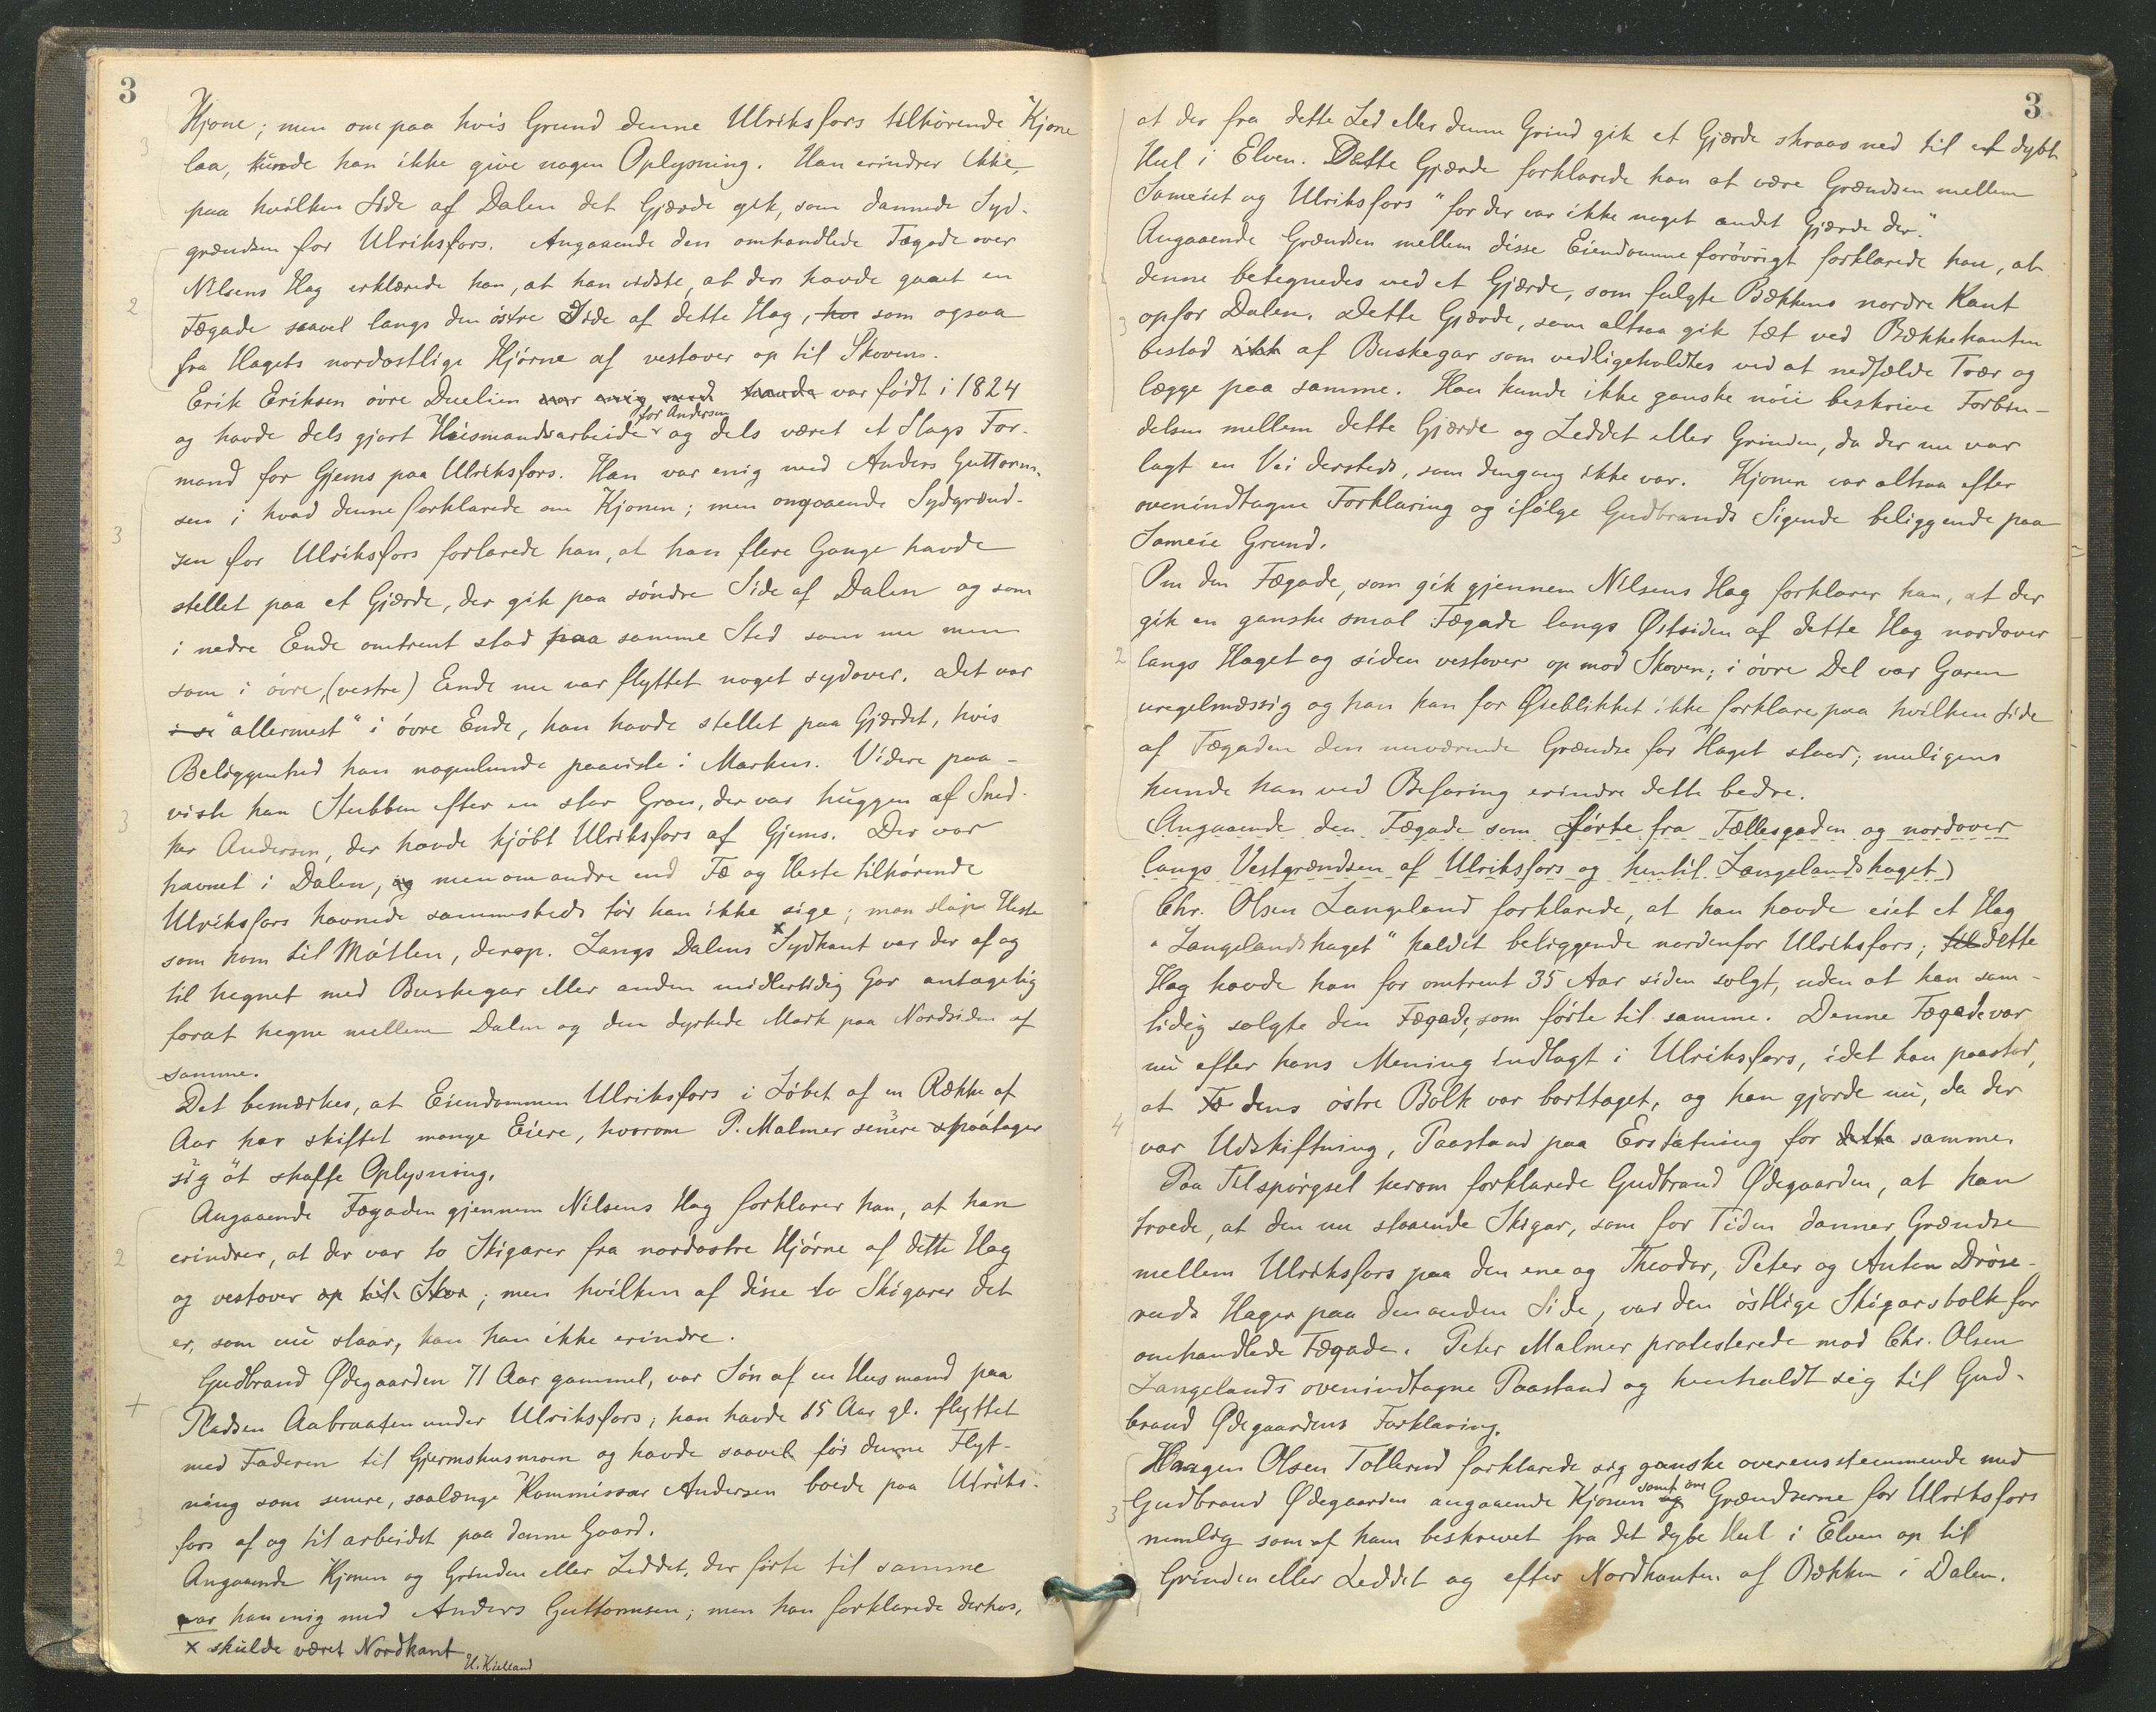 3
Kjone; men om paa hvis Grund denne Ulriksfors tilhørende Kjone
laa, kunde han ikke give nogen Oplysning. Han erindrer ikke,
paa hvilken Side af Dalen det Gjærde gik, som dannede Syd-
grændsen for Ulriksfors. Angaaende den omhandlede Fægade over
Nilsens Hag erklærede han, at han vidste, at der havde gaaet en
Fægade saavel langs den östre Side af dette Hag, som ogsaa
fra Hagets nordøstlige Hjørne af vestover op til Skoven.
Erik Eriksen övre Duelien var født i 1824
og havde dels gjort Husmandsarbeide for Andersen og dels været et Slags For-
mand for Gjems paa Ulriksfors. Han var enig med Anders Guttorm-
sen i hvad denne forklarede om Kjonen; men angaaende Sydgrænd-
sen for Ulriksfors forlarede han, at han flere Gange havde
stellet paa et Gjærde, der gik paa søndre Side af Dalen og som
i nedre Ende omtrent stod paa samme Sted som nu men
som i övre, (vestre) Ende nu var flyttet noget sydover. Det var
"allermest" i övre Ende, han havde stellet paa Gjærdet, hvis
Beliggenhed han nogenlunde paaviste i Marken. Videre paa-
viste han Stubben efter en stor Gran, der var huggen af Sned-
ker Andersen, der havde kjöbt Ulriksfors af Gjems. Der var
havnet i Dalen, men om andre end Fæ og Heste tilhørende
Ulriksfors havnede sammesteds tör han ikke sige; man slap Heste
som kom til Møllen, derop. Langs Dalens x Sydkant var der af og
til hegnet med Buskegar eller anden midlertidig Gar antagelig
forat hegne mellem Dalen og den dyrkede Mark paa Nordsiden af
samme.
Det bemærkes, at Eiendommen Ulriksfors i Löbet af en Række af
Aar har skiftet mange Eiere, hvorom P. Malmer senere paatager
sig at skaffe Oplysning.
Angaaende Fægaden gjennem Nilsens Hag forklarer han, at han
erindrer, at der var to Skigarer fra nordostre Hjørne af dette Hag
og vestover op til Skov; men hvilken af disse to Skigarer det
er, som nu staar, kan han ikke erindre.
Gudbrand Ødegaarden 71 Aar gammel, var Søn af en Husmand paa
Pladsen Aabraaten under Ulriksfors; han havde 15 Aar gl. flyttet
med Faderen til Gjermshusmoen og havde saavel før denne Flyt-
ning som senere, saalænge Kommissær Andersen boede paa Ulriks-
fors af og til arbeidet paa denne Gaard.
Angaaende Kjonen og Grinden eller Leddet, der førte til samme
var han enig med Anders Guttormsen; men han forklarede derhos,
x skulde været Nordkant
H. Kielland
3
at der fra dette Led eller denne Grind gik et Gjærde skraas ned til et dybt
Hul i Elven. Dette Gjærde forklarede han at være Grændsen mellem
Sameiet og Ulriksfors "for der var ikke noget andet Gjærde der."
Angaaende Grændsen mellem disse Eiendomme forøvrigt forklarede han, at
denne betegnedes ved et Gjærde, som fulgte Bækkens nordre Kant
opfor Dalen. Dette Gjærde, som altsaa gik tæt ved Bækkekanten
bestod af Buskegar som vedligeholdtes ved at nedfælde Trær og
lægge paa samme. Han kunde ikke ganske nöie beskrive Forbin-
delsen mellem dette Gjærde og Leddet eller Grinden, da der nu var
lagt en Vei dersteds, som dengang ikke var. Kjonen var altsaa efter
ovenindtagne Forklaring og ifølge Gudbrands Sigende beliggende paa
Sameie Grund.
Om den Fægade, som gik gjennem Nilsens Hag forklarer han, at der
gik en ganske smal Fægade langs Østsiden af dette Hag nordover
langs Haget og siden vestover op mod Skoven; i övre Del var Garen
uregelmæssig og han kan for Øieblikket ikke forklare paa hvilken Side
af Fægaden den nuværende Grændse for Haget staar; muligens
kunde han ved Befaring erindre dette bedre.
Angaaende den Fægade som førte fra Fællesgaden og nordover
langs Vestgrændsen af Ulriksfors og hentil Langelandshaget)
Chr. Olsen Langeland forklarede, at han havde eiet et Hag
"Langelandshaget" kaldet beliggende nordenfor Ulriksfors; dette
Hag havde han for omtrent 35 Aar siden solgt, uden at han sam-
tidig solgte den Fægade, som førte til samme. Denne Fægade var
nu efter hans Mening indlagt i Ulriksfors, idet han paastod,
at dens østre Bolk var borttaget, og han gjorde nu, da der
var Udskiftning, Paastand paa Erstatning for samme.
Paa Tilspørgsel herom forklarede Gudbrand Ødegaarden, at han
troede, at den nu staaende Skigar, som for Tiden danner Grændse
mellem Ulriksfors paa den ene og Theodor, Peter og Anton Dröse-
ruds Hager paa den anden Side, var den östlige Skigarsbolk for
omhandlede Fægade. Peter Malmer protesterede mod Chr. Olsen
Langelands ovenindtagne Paastand og henholdt sig til Gud-
brand Ødegaardens Forklaring.
Haagen Olsen Tollerud forklarede sig ganske overensstemmende med
Gudbrand Ødegaarden angaaende Kjonen samt om Grændserne for Ulriksfors
nemlig som af ham beskrevet fra det dybe Hul i Elven op til
Grinden eller Leddet og efter Nordkanten af Bækken i Dalen.